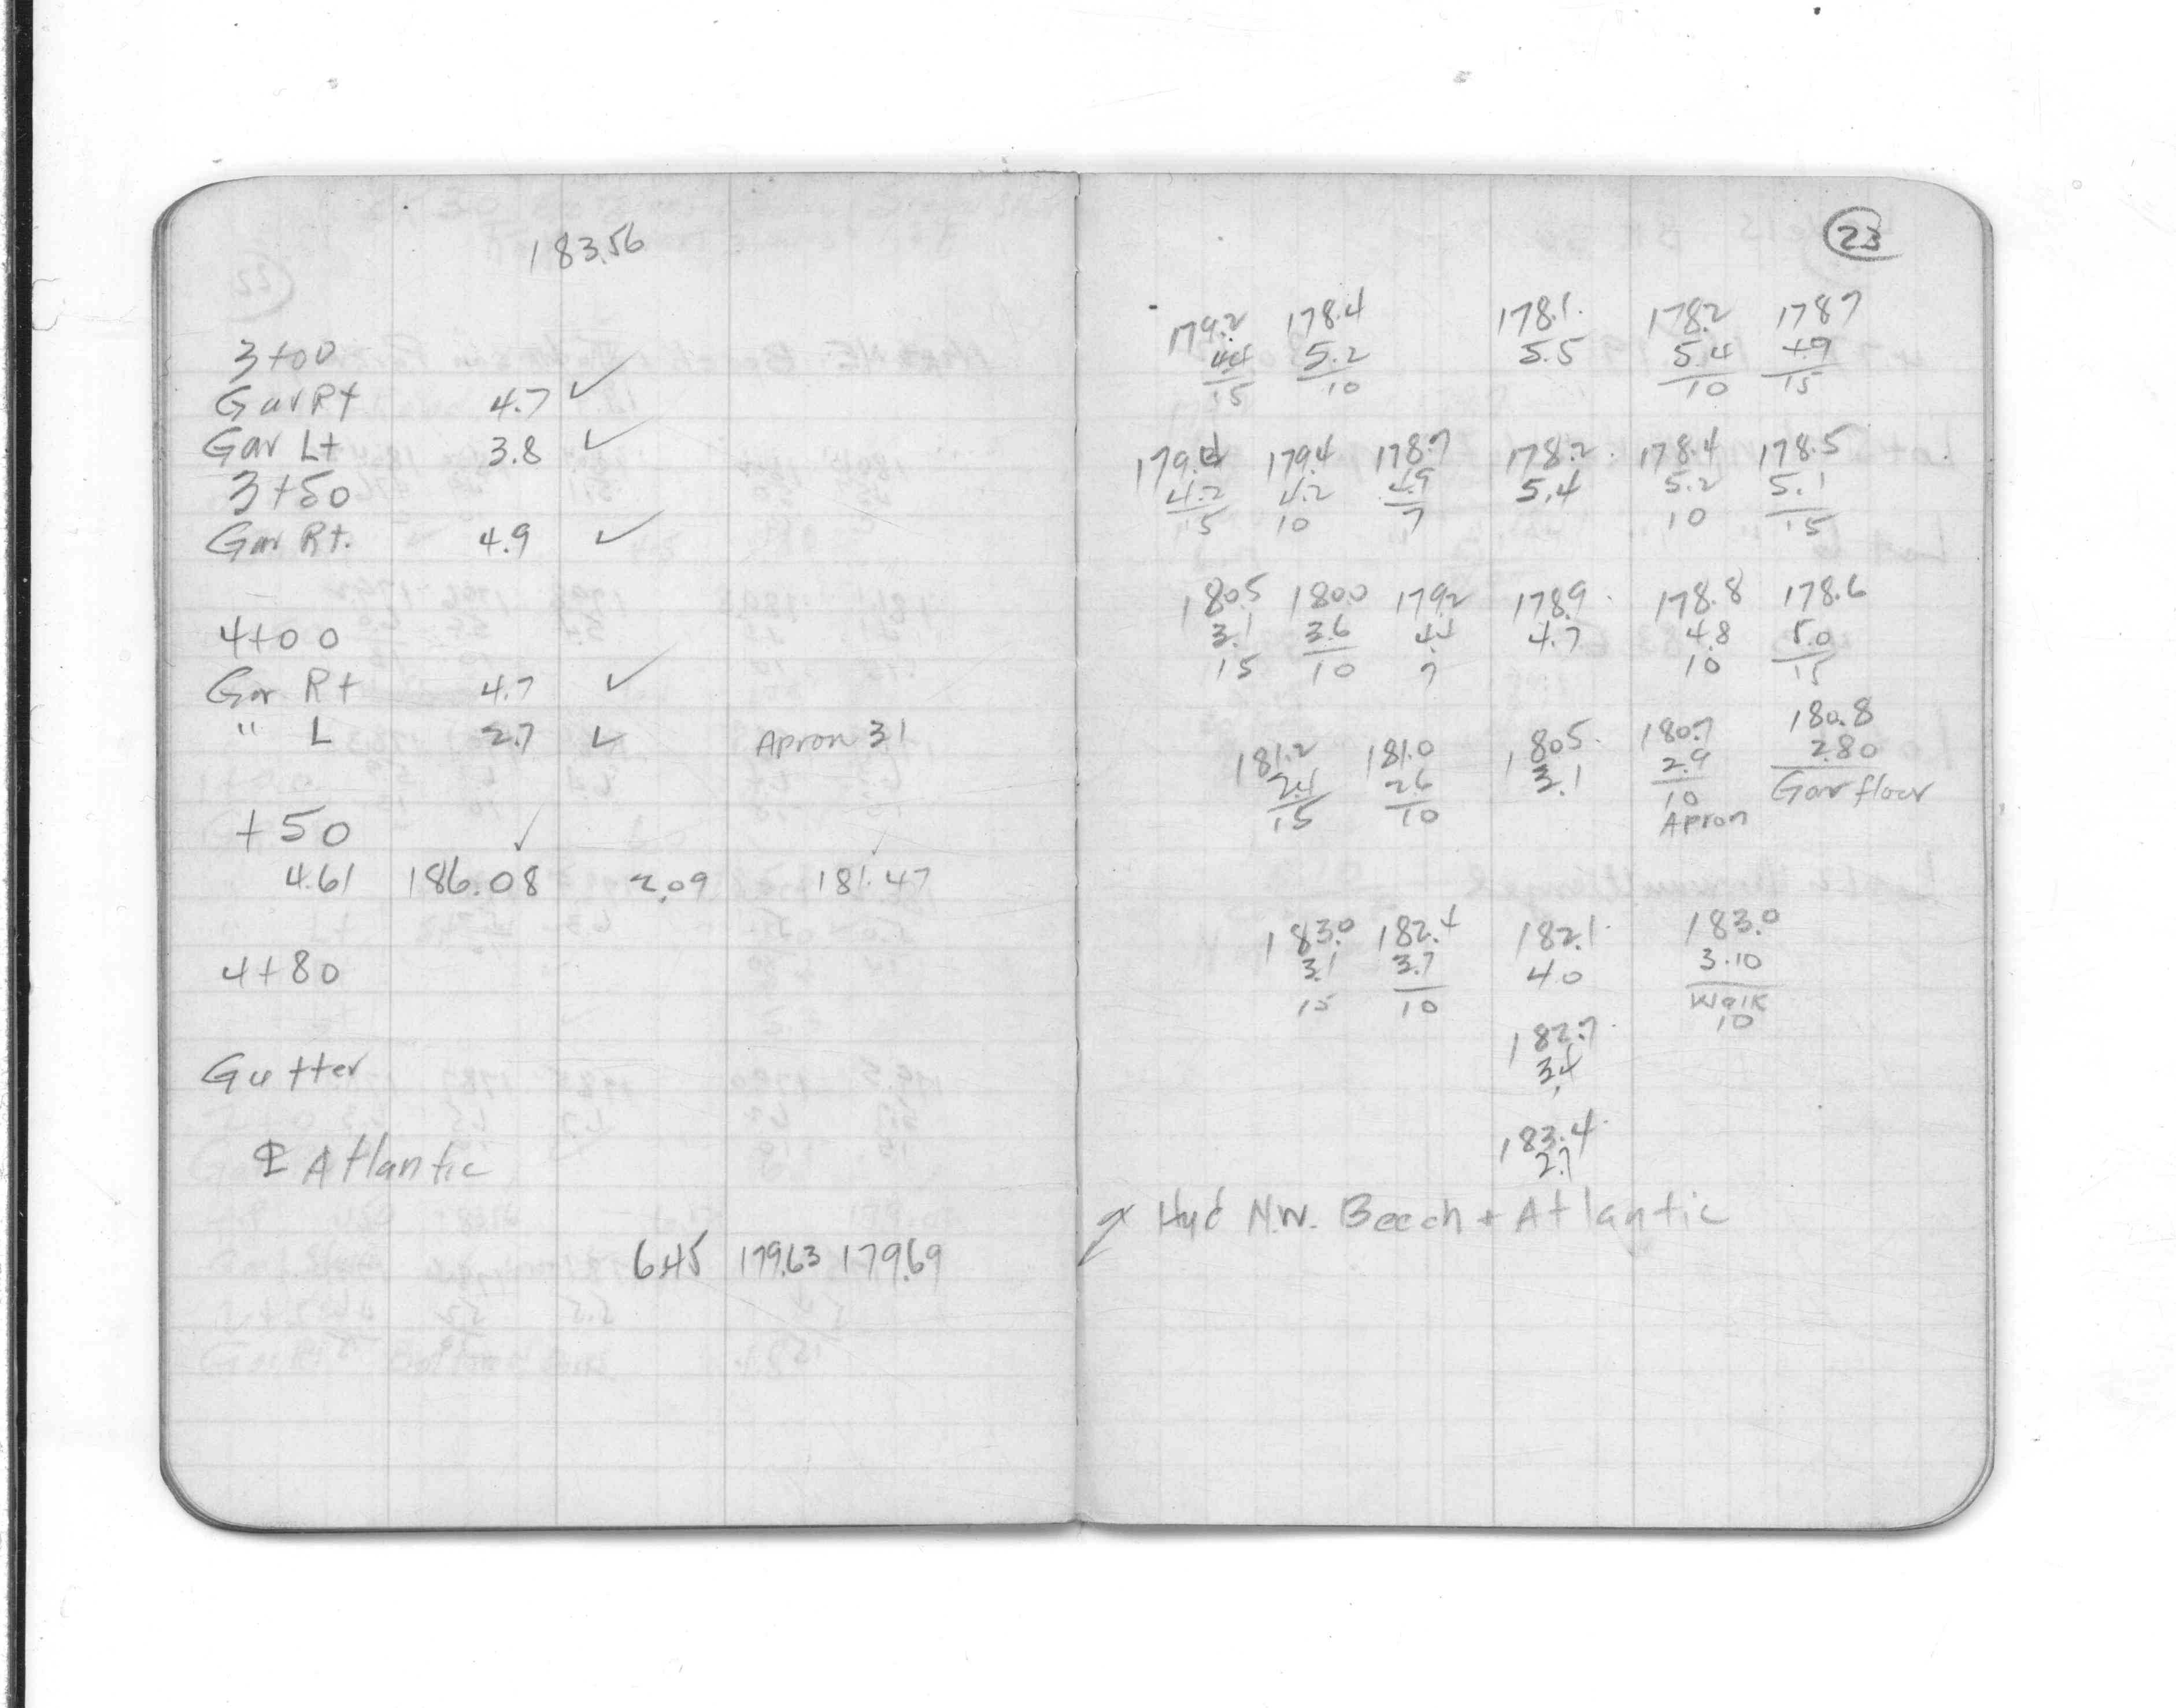 183.56
3+00
Gar Rt 4.7 ✓
Gar Lt 3.8 ✓
3+50
Gar Rt. 4.9 ✓
4+00
Gar Rt 4.7 ✓
" L 2.7 ✓ Apron 31
+50
4.61 186.08 2.09 181.47
4+80
Gutter
℄ Atlantic
6.45 179.63 179.69
23
179.2 178.4 178.1 178.2 178.7
4.4 5.2 5.5 5.4 4.9
15 10 10 15
179.4 179.4 178.7 178.2 178.4 178.5
4.2 4.2 4.9 5.4 5.2 5.1
15 10 7 10 15
180.5 180.0 179.2 178.9 178.8 178.6
3.1 3.6 4.4 4.7 4.8 5.0
15 10 7 10 15
181.2 181.0 180.5 180.7 180.8
2.4 2.6 3.1 2.9 2.80
15 10 10 Gar floor
Apron
183.0 182.4 182.1 183.0
3.1 3.7 4.0 3.10
15 10 Walk
10
182.7
3.4
183.4
2.7
Hyd N.W. Beech + Atlantic